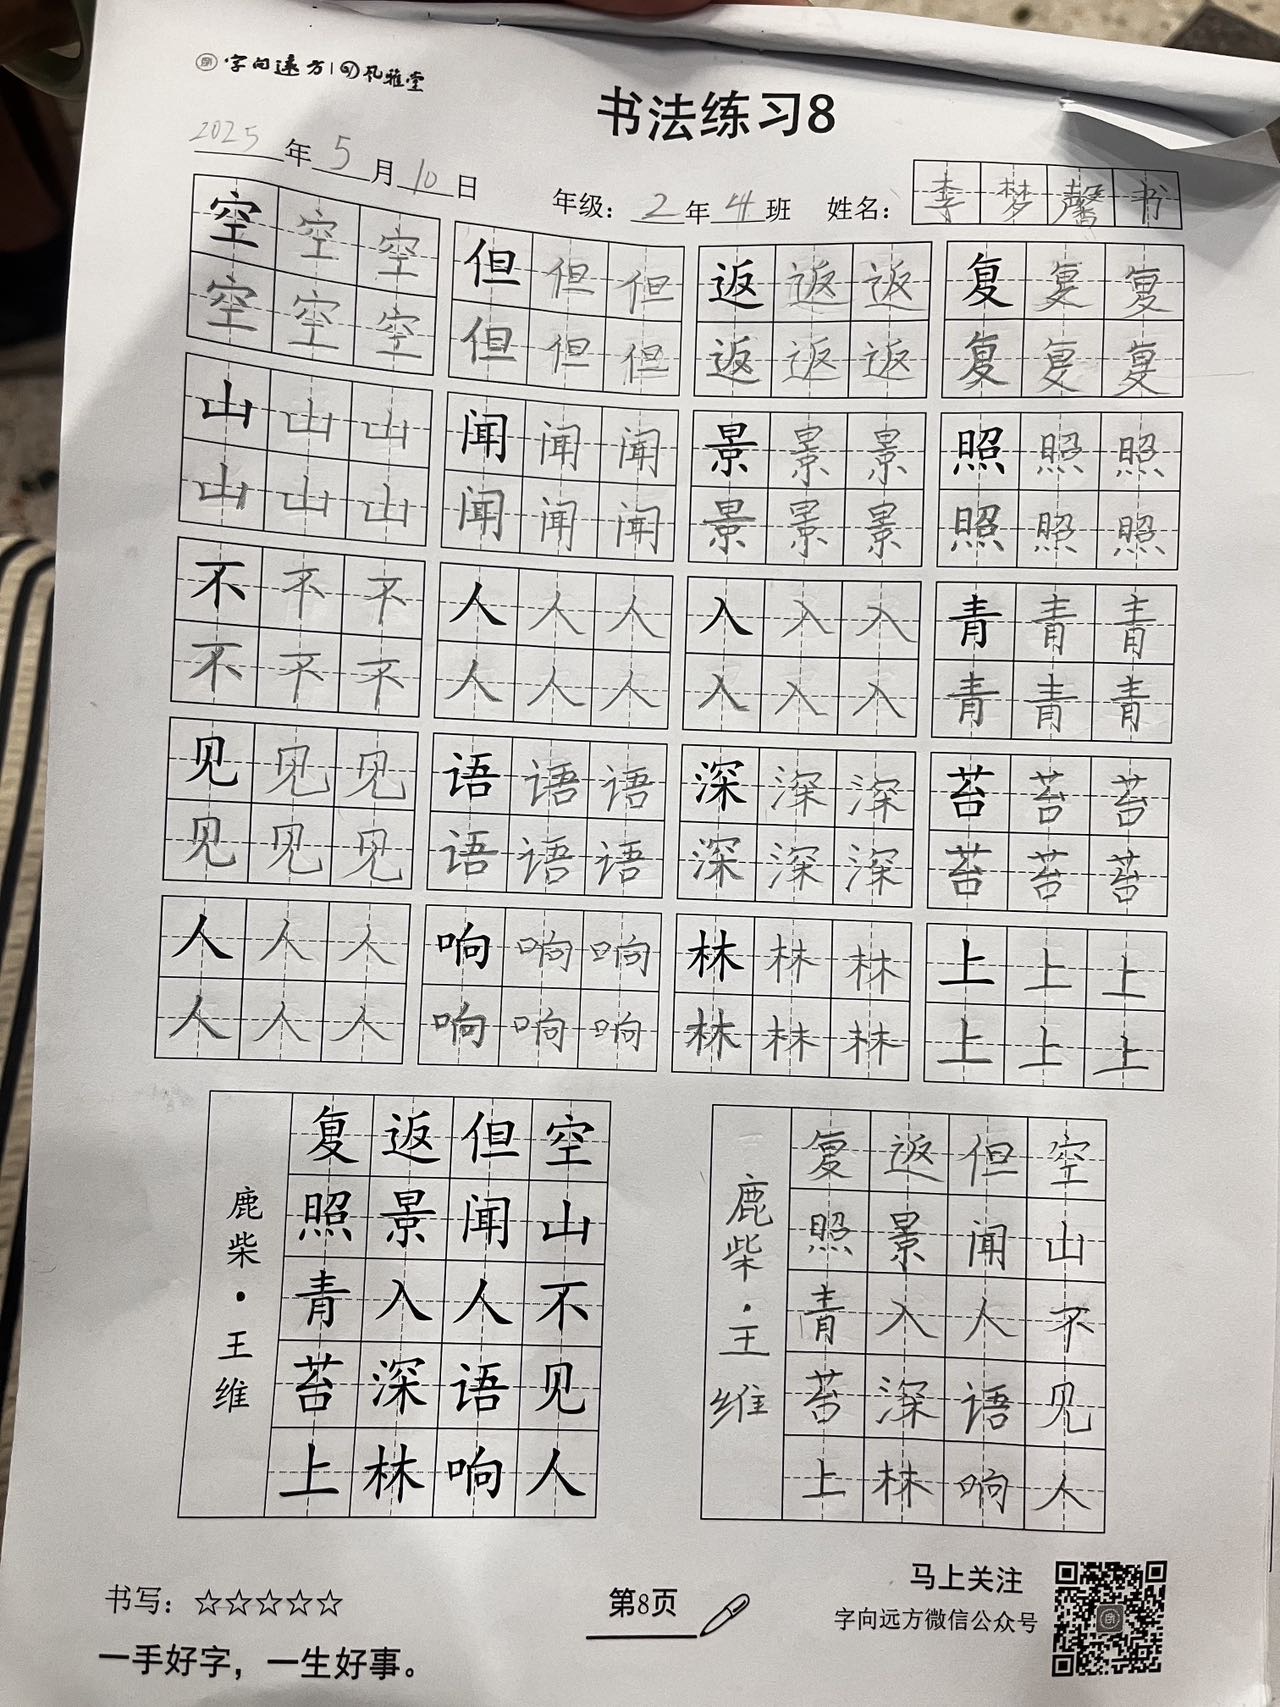 字向远方 风雅堂
书法练习8
2025年5月10日 年级：2年4班 姓名：李梦馨书
空空空 但但但 返返返 复复复
空空空 但但但 返返返 复复复
山山山 闻闻闻 景景景 照照照
山山山 闻闻闻 景景景 照照照
不不不 人人人 入入入 青青青
不不不 人人人 入入入 青青青
见见见 语语语 深深深 苔苔苔
见见见 语语语 深深深 苔苔苔
人人人 响响响 林林林 上上上
人人人 响响响 林林林 上上上
空山不见人
但闻人语响
返景入深林
复照青苔上
鹿柴·王维
空山不见人
但闻人语响
返景入深林
复照青苔上
鹿柴·王维
书写：☆☆☆☆☆
一手好字，一生好事。
第8页
马上关注
字向远方微信公众号